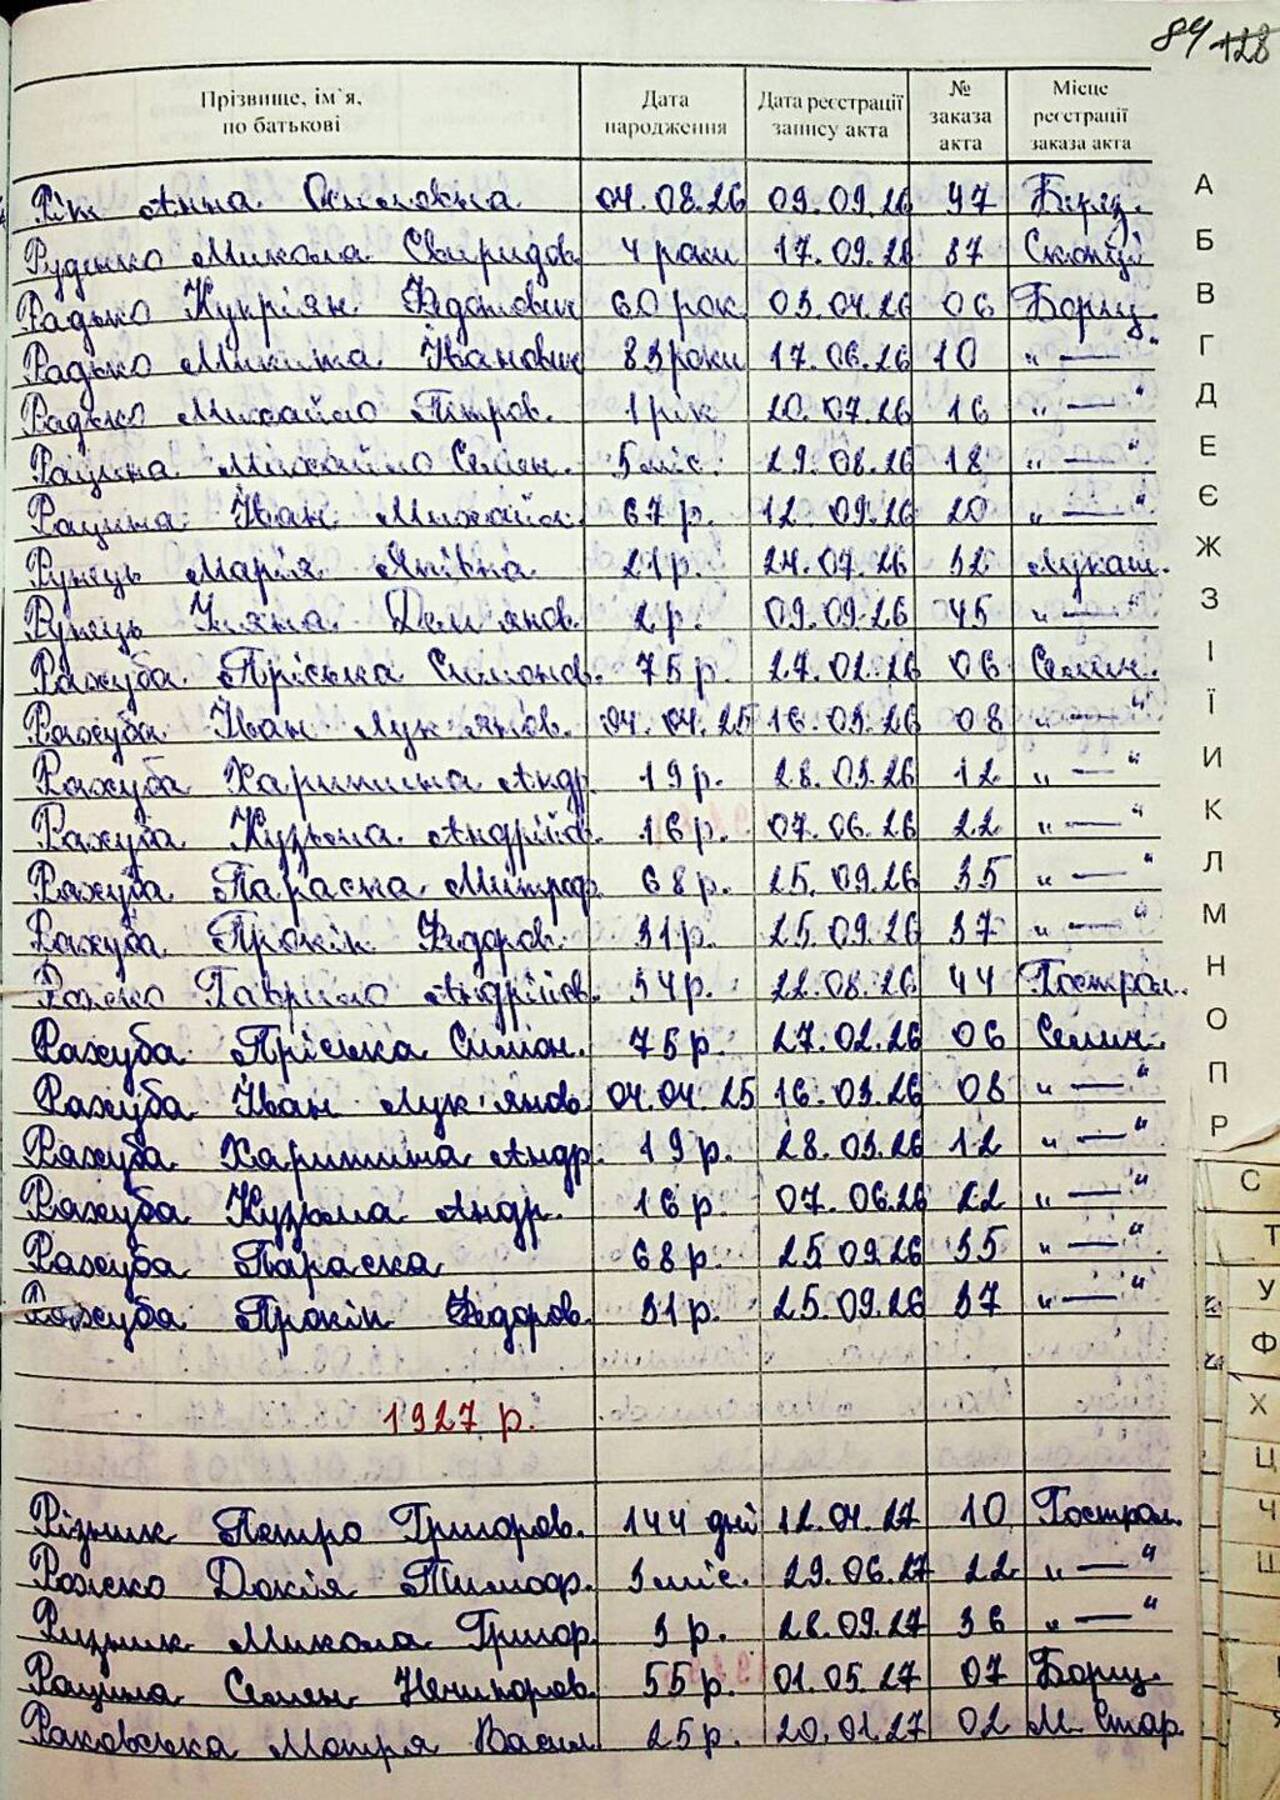 84 128
Прізвище, ім`я, по батькові | Дата народження | Дата реєстрації запису акта | № заказа акта | Місце реєстрації заказа акта
Анна 04.08.26 09.09.26 97
Руденко Микола Свиридов. 4 роки 17.09.26 87
Радько Купріян Федотович 60 рок 03.04.26 06 Борщ.
Радько Микита Іванович 83 роки 17.06.26 10 „—“
Радько Михайло Петров. 1 рік 20.07.26 16 „—“
Рацина Михайло Семен. 5 міс. 29.08.26 18 „—“
Рацина Іван Михайл. 67 р. 12.09.26 20 „—“
Рунець Марія Яківна 21 р. 24.07.26 32 Лукаш.
Рунець Уляна Дем'янов. 2 р. 09.09.26 45 „—“
Рахуба Пріська Симонов. 75 р. 27.02.26 06 Семич.
Рахуба Іван Лук'янов. 04.04.25 16.03.26 08 „—“
Рахуба Харитина Андр. 19 р. 28.03.26 12 „—“
Рахуба Кузьма Андрійов. 16 р. 07.06.26 22 „—“
Рахуба Параска Митроф. 68 р. 25.09.26 35 „—“
Рахуба Прокіп Федоров. 31 р. 25.09.26 37 „—“
Рожко Гаврило Андрійов. 34 р. 22.08.26 44 Гострол.
Рахуба Пріська Симон. 75 р. 27.02.26 06 Семич.
Рахуба Іван Лук'янов 04.04.25 16.03.26 08 „—“
Рахуба Харитина Андр. 19 р. 28.03.26 12 „—“
Рахуба Кузьма Андр. 16 р. 07.06.26 22 „—“
Рахуба Параска 68 р. 25.09.26 35 „—“
Рахуба Прокіп Федоров. 31 р. 25.09.26 37 „—“
1927 р.
Різник Петро Григоров. 144 дні 12.04.27 10 Гострол.
Рожко Докія Тимоф. 3 міс. 29.06.27 22 „—“
Ризник Микола Григор. 3 р. 28.09.27 36 „—“
Рацина Семен Ничипоров. 55 р. 01.05.27 07 Борщ.
Раковська Мотря Васил. 25 р. 20.01.27 02 М. Стар.
А
Б
В
Г
Д
Е
Є
Ж
З
І
Ї
И
К
Л
М
Н
О
П
Р
С
Т
У
Ф
Х
Ц
Ч
Ш